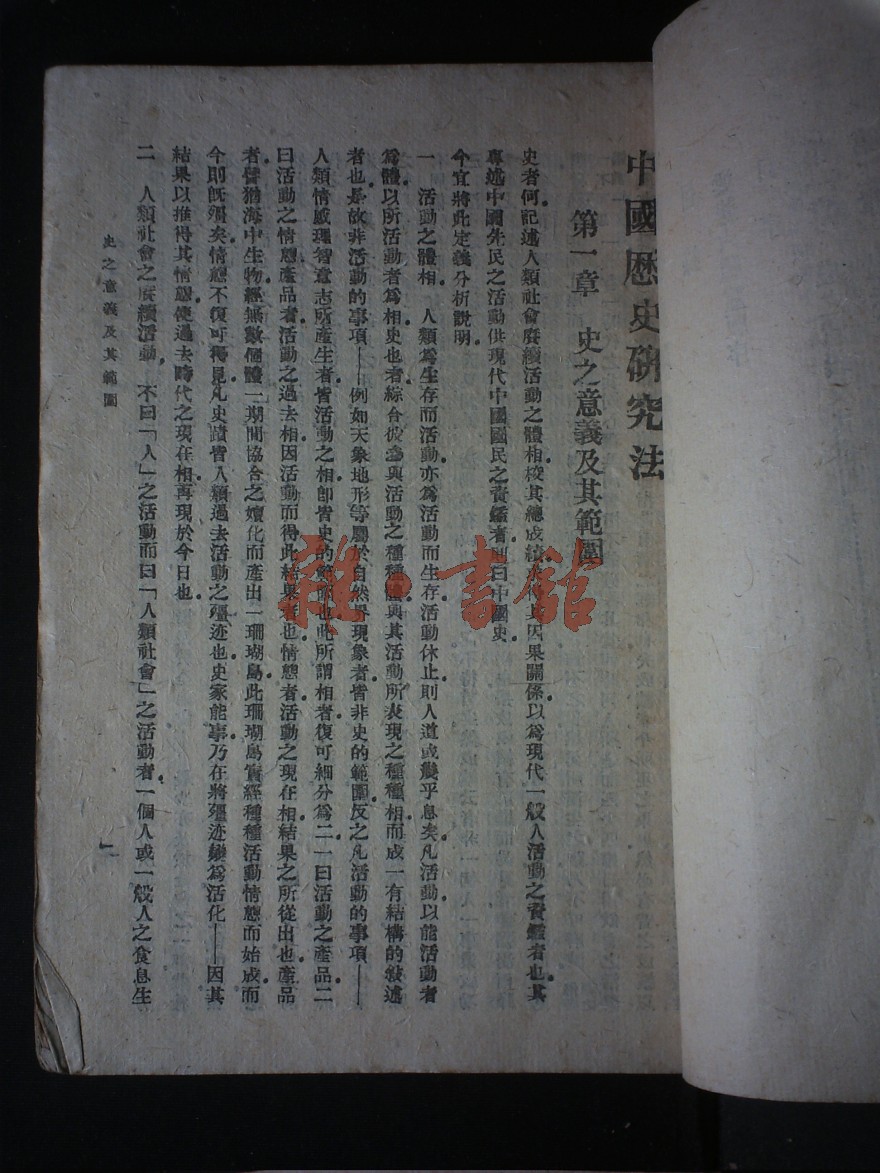 中國歷史研究法
第一章 史之意義及其範圍
史者何記述人類社會賡續活動之體相校其總成績求得其因果關係以為現代一般人活動之資鑑者也其
專述中國先民之活動供現代中國國民之資鑑者則曰中國史
今宜將此定義分析說明
一 活動之體相 人類為生存而活動亦為活動而生存活動休止則人道或幾乎息矣凡活動以能活動者
為體以所活動者為相史也者綜合彼參與活動之種種體與其活動所表現之種種相而成一有結構的敘述
者也是故非活動的事項——例如天象地形等屬於自然界現象者皆非史的範圍反之凡活動的事項——
人類情感理智意志所產生者皆活動之相即皆史的範圍也此所謂相者復可細分為二一曰活動之產品二
曰活動之情態產品者活動之過去相因活動而得此結果者也情態者活動之現在相結果之所從出也產品
者譬猶海中生物經無數個體一期間協合之嬗化而產出一珊瑚島此珊瑚島實經種種活動情態而始成而
今則既殭矣情態不復可得見凡史蹟皆人類過去活動之殭迹也史家能事乃在將殭迹變為活化——因其
結果以推得其情態使過去時代之現在相再現於今日也
二 人類社會之賡續活動 不曰「人」之活動而曰「人類社會」之活動者一個人或一般人之食息生
史之意義及其範圍
一
雜·書館